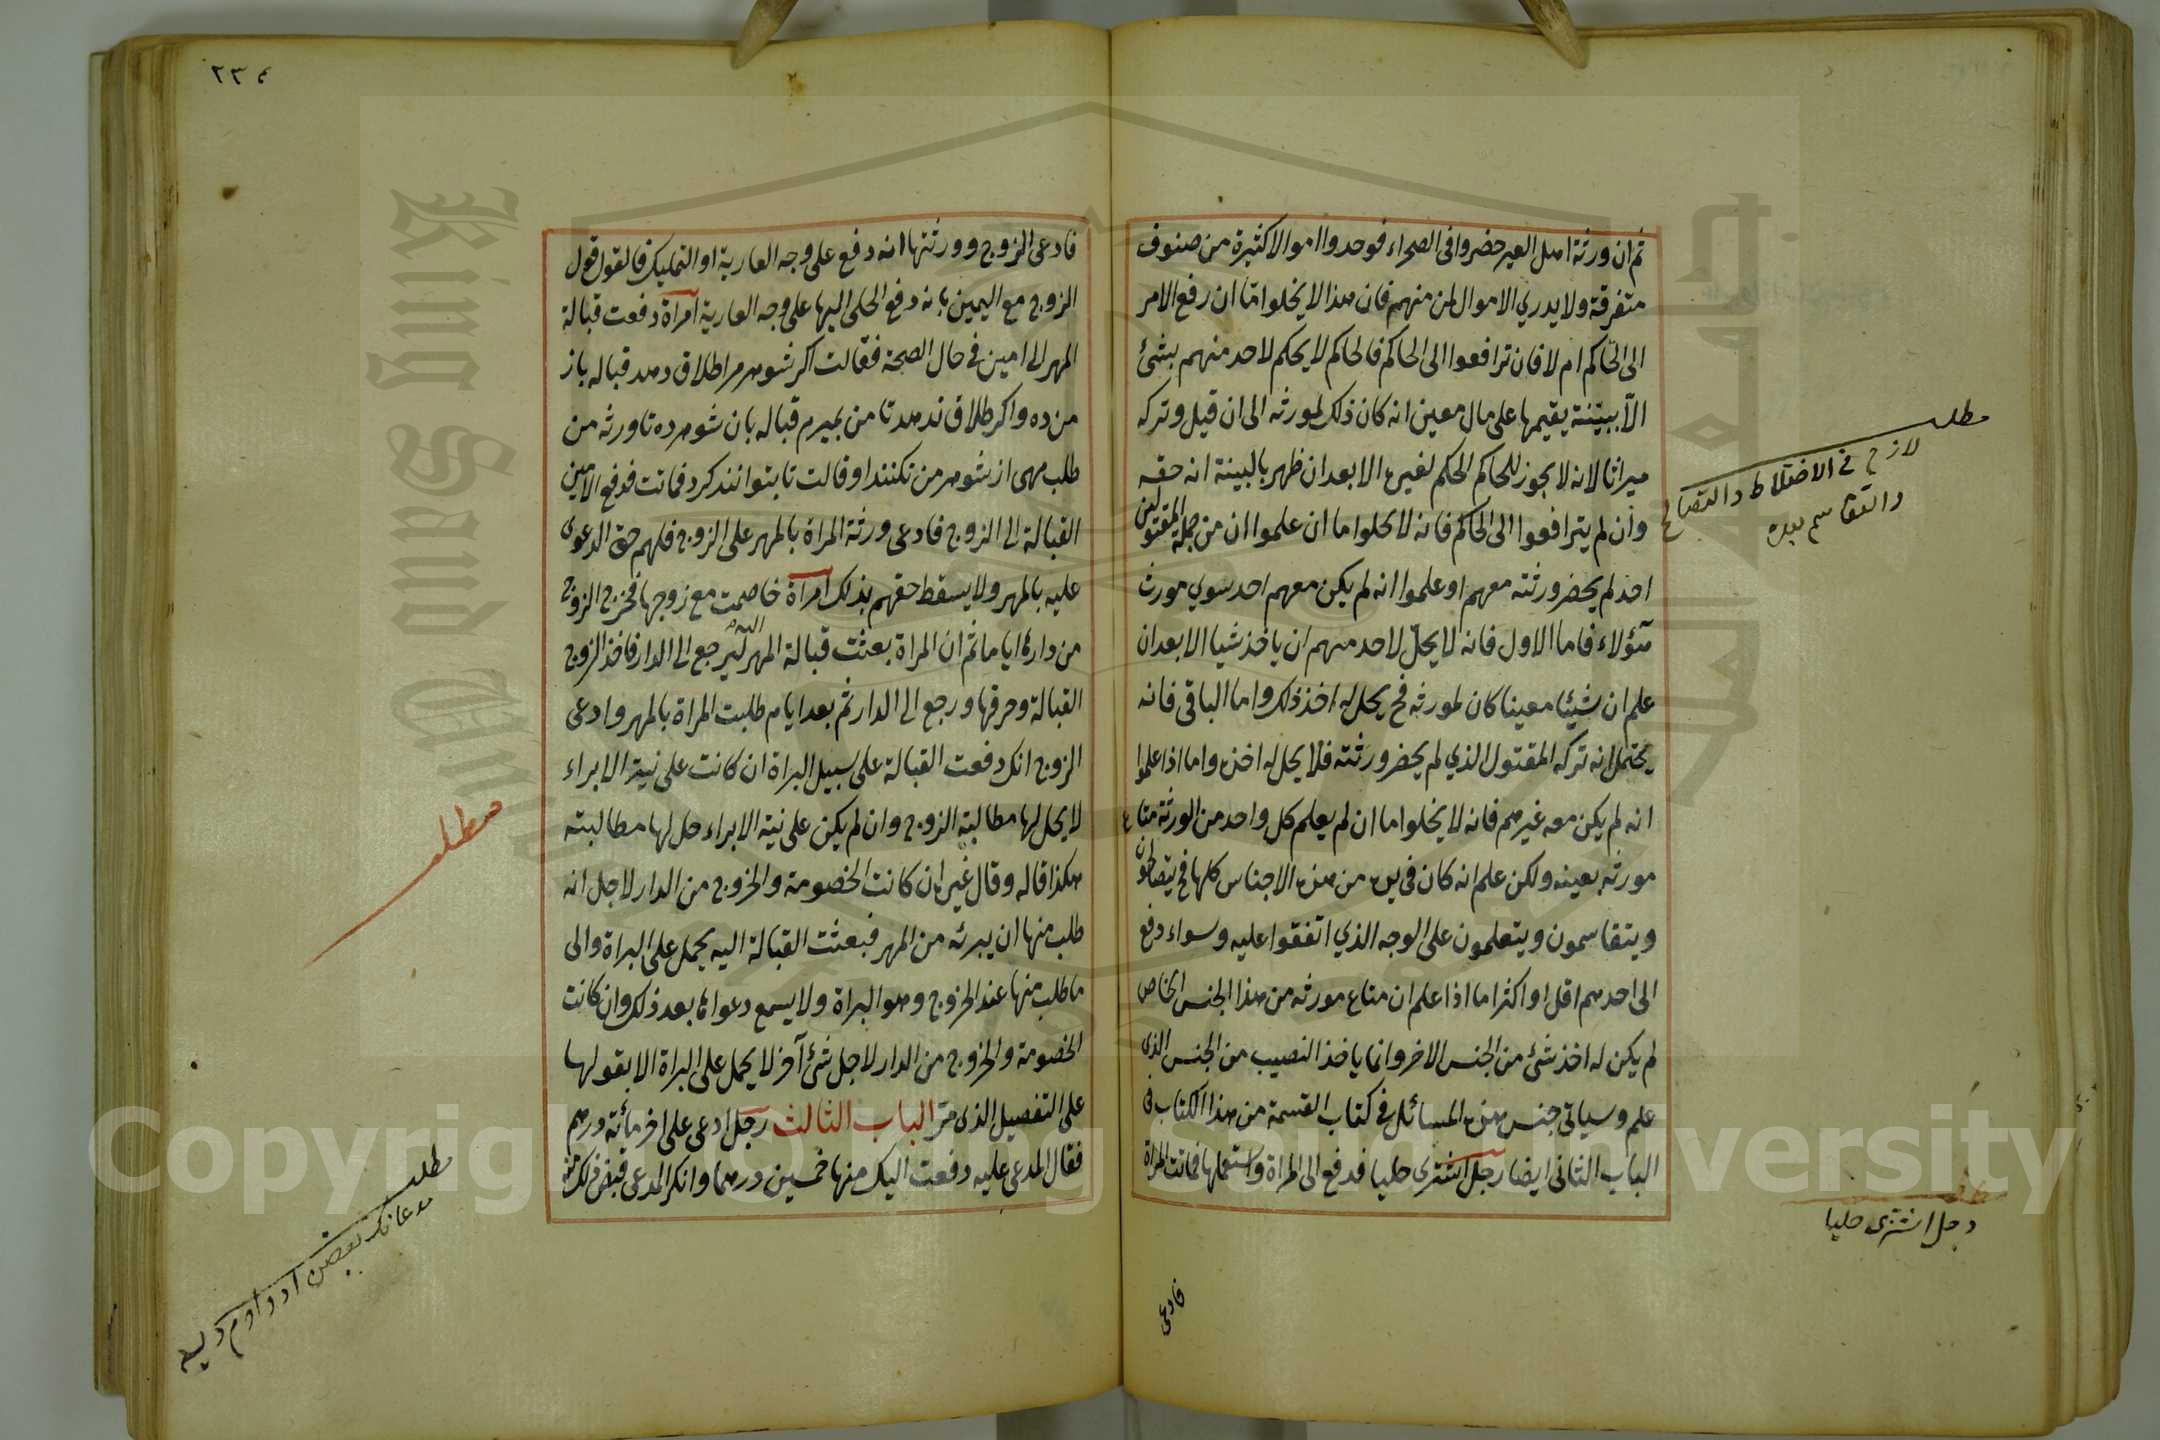 ثم ان ورثة اهل العير حضروا فى الصحراء فوجدوا اموالا كثيرة من صنوف
متفرقة ولا يدري الاموال لمن منهم فان هذا لا يخلوا امّا ان رفع الامر
الى الحاكم ام لا فان ترافعوا الى الحاكم فالحاكم لا يحكم لاحد منهم بشئ
الّا ببيّنة يقيمها على مال معين انه كان ذلك لمورثه الى ان قتل وتركه
ميراثا لانه لا يجوز للحاكم الحكم لغيره الا بعد ان ظهر بالبينة انه حقه
وان لم يترافعوا الى الحاكم فانه لا يخلوا ما ان علموا ان من جملة المقتولين
احد لم يحضر ورثته معهم او علموا انه لم يكن معهم احد سوي مورث
هؤلاء فاما الاول فانه لا يحلّ لاحد منهم ان ياخذ شيا الا بعد ان
علم ان شيئا معينا كان لمورثه فح يحل له اخذ ذلك واما الباقى فانه
يحتمل انه تركه المقتول الذي لم يحضر ورثته فلا يحل له اخذه واما اذا علموا
انه لم يكن معه غيرهم فانه لا يخلوا ما ان لم يعلم كل واحد من الورثة متاع
مورثه بعينه ولكن علم انه كان فى يده من هذه الاجناس كلها فح يتصالحون
ويتقاسمون ويتعلمون على الوجه الذي اتفقوا عليه وسواء دفع
الى احدهم اقل او اكثر اما اذا علم ان متاع مورثه من هذا الجنس الخاص
لم يكن له اخذ شئ من الجنس الاخر وانما ياخذ النصيب من الجنس الذى
علم وسياتى جنس هذه المسائل فى كتاب القسمة من هذا الكتاب فى
الباب الثانى ايضا رجل اشترى حليا فدفع الى المراة واستعملها فماتت المراة
فادعى
مطلب
فى الاختلاط والتصالح
والتقاسم بعده
رجل اشترى حليا
٢٣٤
فادعى الزوج وورثتها انه دفع على وجه العارية او التمليك فالقول قول
الزوج مع اليمين بانه دفع الحلى اليها على وجه العارية امراة دفعت قبالة
المهر الى امين فى حال الصحة فقالت اكر شوهرم مرا طلاق دهد قباله باز
من ده واكر طلاق ندهد تا من بميرم قباله بان شوهر ده تا ورثه من
طلب مهر از شوهر من نكنند او قالت تا بتوانند كرد فماتت فدفع الامين
القبالة الى الزوج فادعى ورثة المراة بالمهر على الزوج فلهم حق الدعوى
عليه بالمهر ولا يسقط حقهم بذلك امراة خاصمت مع زوجها فخرج الزوج
من داره اياما ثم ان المراة بعثت قبالة المهر اليه ليرجع الى الدار فاخذ الزوج
القبالة وحرقها ورجع الى الدار ثم بعد ايام طلبت المراة بالمهر وادعى
الزوج انك دفعت القبالة على سبيل البراة ان كانت على نية الابراء
لا يحل لها مطالبة الزوج وان لم يكن على نية الابراء حل لها مطالبته
هكذا قاله وقال غيره ان كانت الخصومة والخروج من الدار لاجل انه
طلب منها ان يبرئه من المهر فبعثت القبالة اليه يحمل على البراة والى
ما طلب منها عند الخروج وهو البراة ولا يسمع دعواها بعد ذلك وان كانت
الخصومة والخروج من الدار لاجل شئ آخر لا يحمل على البراة الا بقولها
على التفصيل الذى مرّ الباب الثالث رجل ادعى على اخر مائة درهم
فقال المدعى عليه دفعت اليك منها خمسين درهما وانكر المدعى قبض ذلك منه
مطلب
مطلب